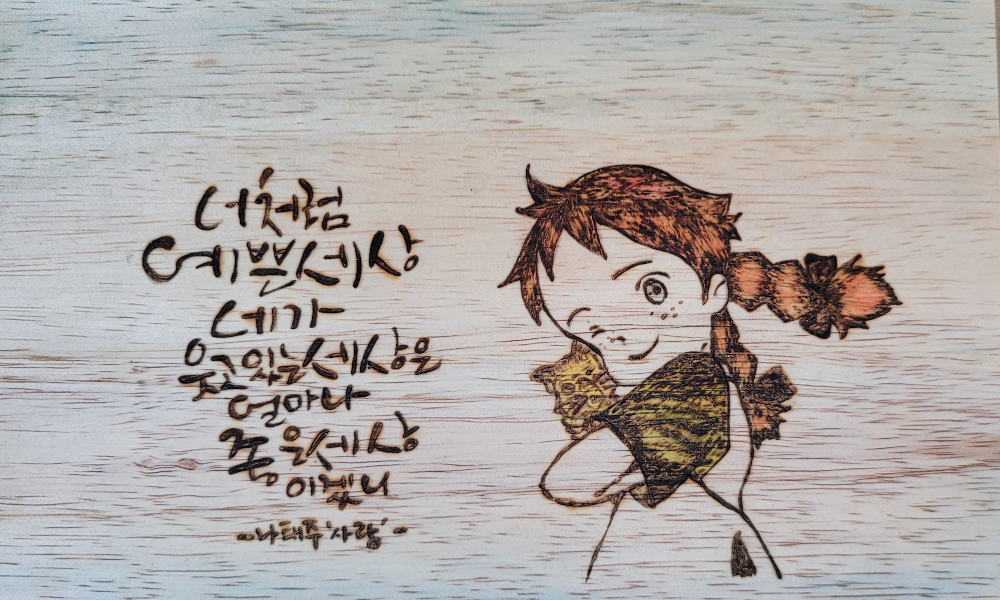 너처럼
예쁜세상
네가
웃고있는세상은
얼마나
좋은세상
이겠니
-나태주'사랑'-